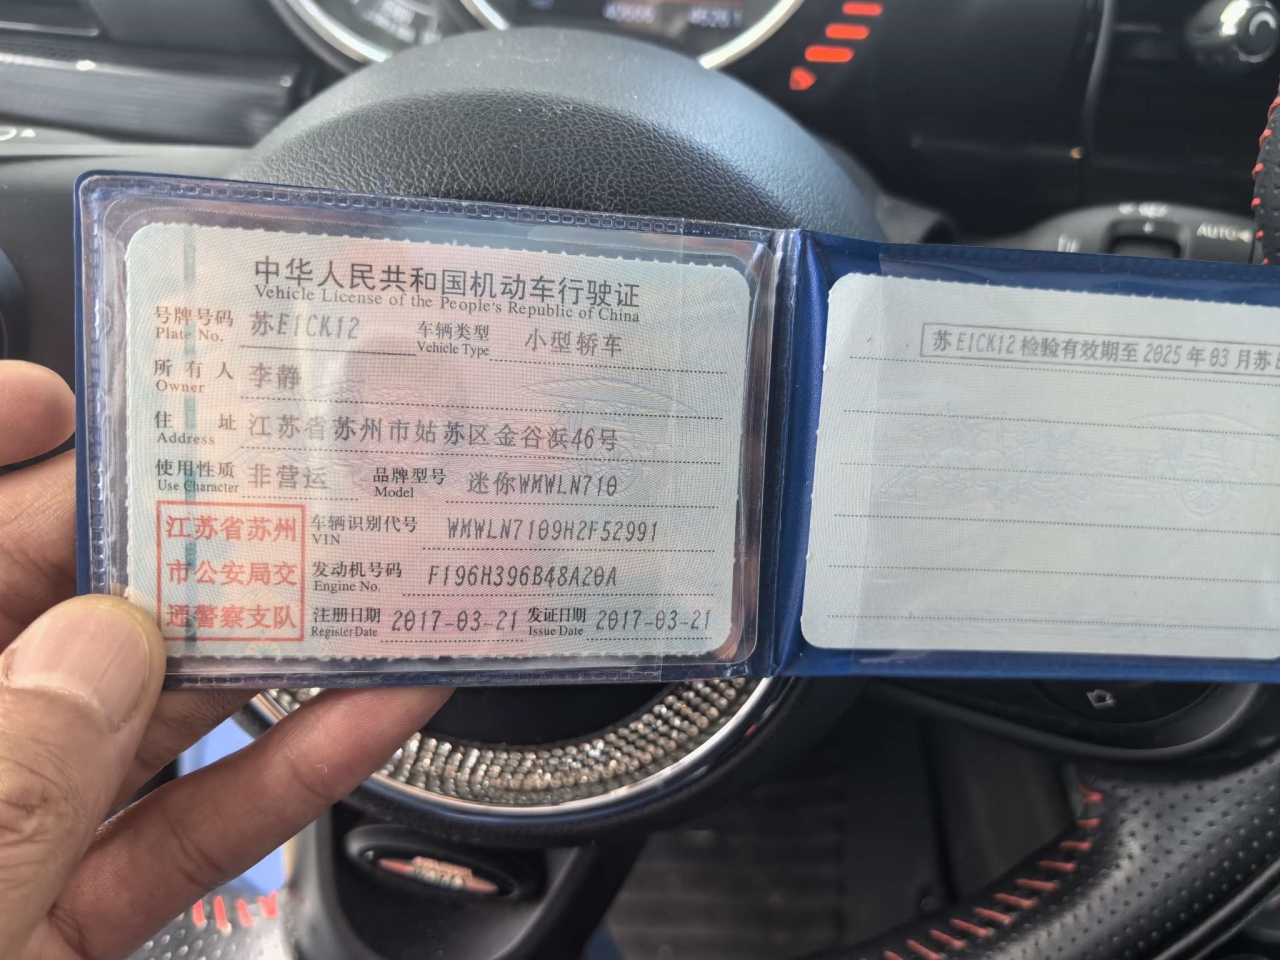 中华人民共和国机动车行驶证
Vehicle License of the People's Republic of China
号牌号码 苏E1CK12 车辆类型 小型轿车
Plate No. Vehicle Type
所有人 李静
Owner
住址 江苏省苏州市姑苏区金谷浜46号
Address
使用性质 非营运 品牌型号 迷你WMWLN710
Use Character Model
江苏省苏州
市公安局交
通警察支队
车辆识别代号 WMWLN7109H2F52991
VIN
发动机号码 F196H396B48A20A
Engine No.
注册日期 2017-03-21 发证日期 2017-03-21
Register Date Issue Date
苏E1CK12检验有效期至2025年03月苏
AUTO